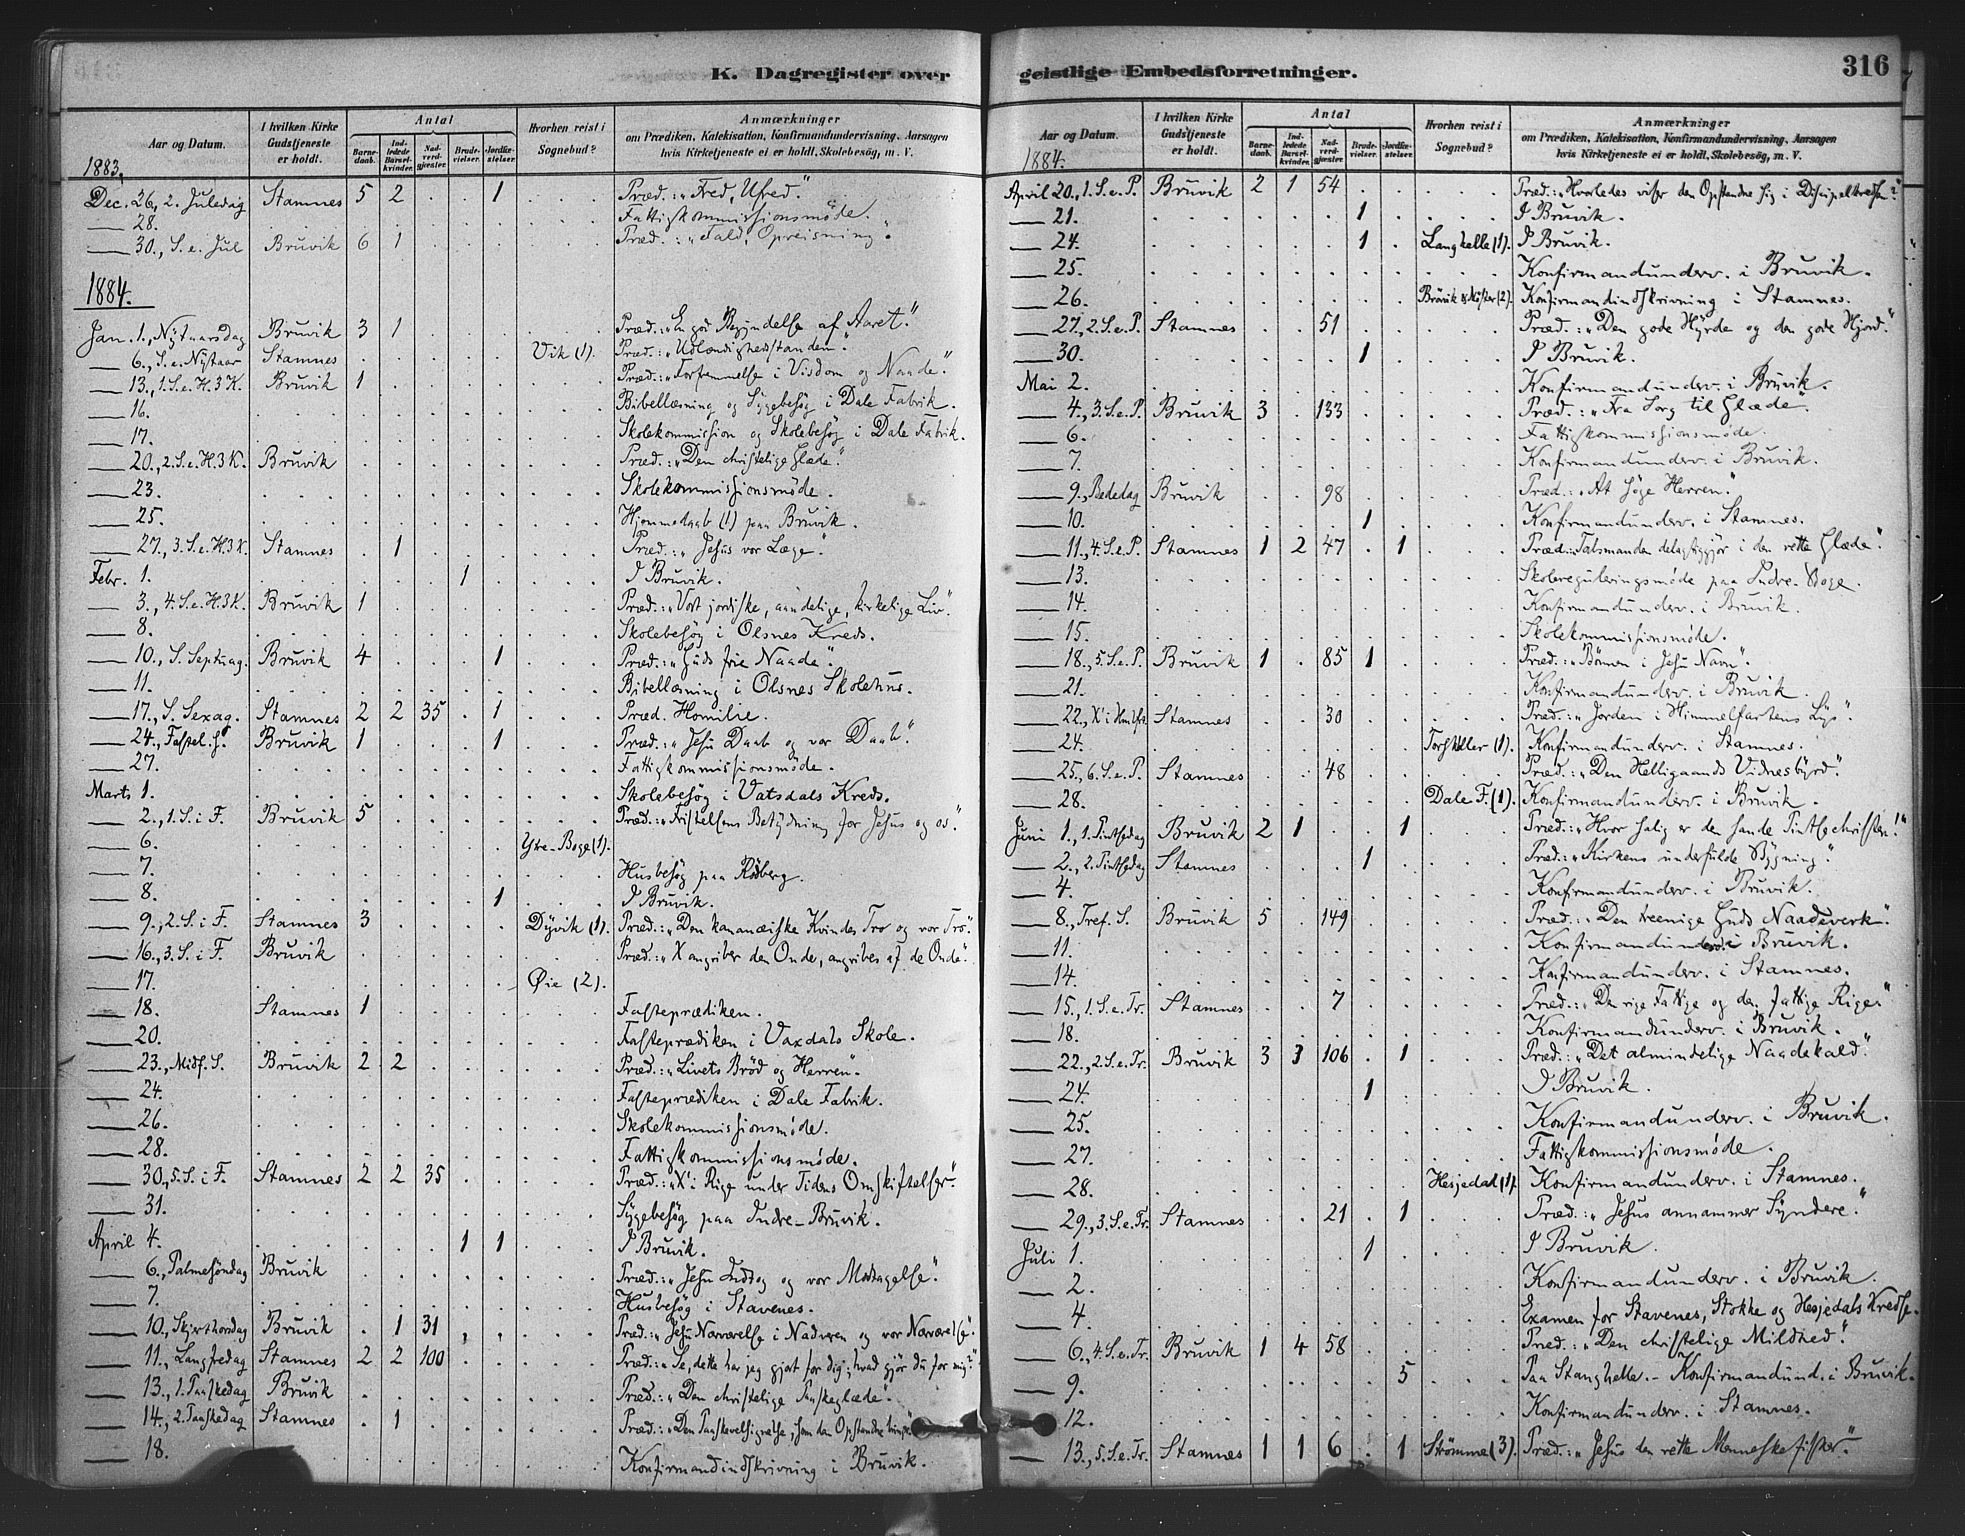 K. Dagregister over
Aar og Datum. I hvilken Kirke Gudstjeneste er holdt. Antal Barnedaab. Indledede Barselkvinder. Nadverdgjæster. Brudevielser. Jordfæstelser. Hvorhen reist i Sognebud? Anmærkninger om Prædiken, Katekisation, Konfirmandundervisning, Aarsagen hvis Kirketjeneste ei er holdt, Skolebesøg, m. V.
1883.
Dec. 26, 2. Juledag Stamnes 5 2 . . 1 Præd.: „Fred, Ufred.“
— 28. Fattigkommissionsmøde.
— 30., S. e. Jul Bruvik 6 1 Præd.: „Fald, Opreisning“.
1884.
Jan. 1., Nytaarsdag Bruvik 3 1 Præd.: „En god Begyndelse af Aaret“.
— 6., S. e. Nytaar Stamnes Vik (1). Præd.: „Udlændighedsstanden“.
— 13., 1. S. e. H. 3 K. Bruvik 1 Præd.: „Forfremmelse i Visdom og Naade“.
— 16. Bibellæsning og Sygebesøg i Dale Fabrik.
— 17. Skolekommission og Skolebesøg i Dale Fabrik.
— 20., 2. S. e. H. 3 K. Bruvik Præd.: „Den christelige Glæde“.
— 23. Skolekommissionsmøde.
— 25. Hjemmedaab (1) paa Bruvik.
— 27., 3. S. e. H. 3 K. Stamnes . 1 Præd.: „Jesus vor Læge“.
Febr. 1. 1 I Bruvik.
— 3., 4. S. e. H. 3 K. Bruvik 1 Præd.: „Vort jordiske, aandelige, kirkelige Liv“.
— 8. Skolebesøg i Olsnes Kreds.
— 10., S. Septuag. Bruvik 4 . . . 1 Præd.: „Guds frie Naade“.
— 11. Bibellæsning i Olsnes Skolehus.
— 17., S. Sexag. Stamnes 2 2 35 . 1 Præd. Homilie.
— 24., Fastel. S. Bruvik 1 . . . 1 Præd.: „Jesu Daab og vor Daab“.
— 27. Fattigkommissionsmøde.
Marts 1. Skolebesøg i Vatsdals Kreds.
— 2., 1. S. i F. Bruvik 5 Præd.: „Fristelsens Betydning for Jesus og os“.
— 6. Ytre-Boge (1).
— 7. Husbesøg paa Rødberg.
— 8. 1 I Bruvik.
— 9., 2. S. i F. Stamnes 3 Dyvik (1). Præd.: „Den kananæiske Kvindes Tro og vor Tro“.
— 16., 3. S. i F. Bruvik Præd.: „X angriber den Onde, angribes af de Onde“.
— 17. Øie (2).
— 18. Stamnes 1 Fasteprædiken.
— 20. Fasteprædiken i Vaxdals Skole.
— 23., Midf. S. Bruvik 2 2 Præd.: „Livets Brød og Herren“.
— 24. Fasteprædiken i Dale Fabrik.
— 26. Skolekommissionsmøde.
— 28. Fattigkommissionsmøde.
— 30., 5. S. i F. Stamnes 2 2 35 Præd.: „X' i Rige under Tidens Omskiftelser“.
— 31. Sygebesøg paa Indre-Bruvik.
April 4. 1 1 I Bruvik.
— 6., Palmesøndag Bruvik Præd.: „Jesu Indtog og vor Modtagelse“.
— 7. Husbesøg i Stavenes.
— 10., Skjærthorsdag Bruvik . 1 31 Præd.: „Jesu Nærværelse i Nadveren og vor Nærværelse“.
— 11., Langfredag Stamnes 2 2 100 Præd.: „Se, dette har jeg gjort for dig; hvad gjør du for mig?“
— 13., 1. Paaskedag Bruvik Præd.: „Den christelige Paaskeglæde“.
— 14., 2. Paaskedag Stamnes . 1 Præd.: „Den Paaskevelsignelse, som den Opstandne
— 18. Konfirmandindskrivning i Bruvik.
geistlige Embedsforretninger. 316
Aar og Datum. I hvilken Kirke Gudstjeneste er holdt. Antal Barnedaab. Indledede Barselkvinder. Nadverdgjæster. Brudevielser. Jordfæstelser. Hvorhen reist i Sognebud? Anmærkninger om Prædiken, Katekisation, Konfirmandundervisning, Aarsagen hvis Kirketjeneste ei er holdt, Skolebesøg, m. V.
1884.
April 20., 1. S. e. P. Bruvik 2 1 54 Præd.: „Hvorledes viser den Opstandne sig i Discipelkredsen?“
— 21. 1 I Bruvik.
— 24. 1 Langhelle (1). I Bruvik.
— 25. Konfirmandunderv. i Bruvik.
— 26. (2). Konfirmandindskrivning i Stamnes.
— 27., 2. S. e. P. Stamnes 51 Præd.: „Den gode Hyrde og den gode Hjord“.
— 30. 1 I Bruvik.
Mai 2. Konfirmandunderv. i Bruvik.
— 4., 3. S. e. P. Bruvik 3 . 133 Præd.: „Fra Sorg til Glæde“.
— 6. Fattigkommissionsmøde.
— 7. Konfirmandunderv. i Bruvik.
— 9., Bededag Bruvik 98 Præd.: „At søge Herren“.
— 10. 1 Konfirmandunderv. i Stamnes.
— 11., 4. S. e. P. Stamnes 1 2 47 . 1 Præd.: Talsmanden delagtiggjør i den rette Glæde“.
— 13. Skolereguleringsmøde paa Indre-Boge.
— 14. Konfirmandunderv. i Bruvik.
— 15. Skolekommissionsmøde.
— 18., 5. S. e. P. Bruvik 1 . 85 1 Præd.: „Bønnen i Jesu Navn“.
— 21. Konfirmandunderv. i Bruvik.
— 22., X' i Hmlfst. Stamnes 30 Præd.: „Jorden i Himmelfartens Lys“.
— 24. (1). Konfirmandunderv. i Stamnes.
— 25., 6. S. e. P. Stamnes 48 Præd.: „Den Helligaands Vidnesbyrd“.
— 28. Dale F. (1). Konfirmandunderv. i Bruvik.
Juni 1., 1. Pintsedag Bruvik 2 1 . . 1 Præd.: „Hvor salig er den sande Pintsechristen!“
— 2., 2. Pintsedag Stamnes 1 Præd.: „Kirkens underfulde Bygning“.
— 4. Konfirmandunderv. i Bruvik.
— 8., Tref. S. Bruvik 5 . 149 Præd.: „Den treenige Guds Naadeverk“.
— 11. Konfirmandunderv. i Bruvik.
— 14. Konfirmandunderv. i Stamnes.
— 15., 1. S. e. Tr. Stamnes 7 Præd.: „Den rige Fattige og den fattige Rige“
— 18. Konfirmandunderv. i Bruvik.
— 22., 2. S. e. Tr. Bruvik 3 3 106 . 1 Præd.: „Det almindelige Naadekald“.
— 24. 1 I Bruvik.
— 25. Konfirmandunderv. i Bruvik.
— 27. Fattigkommissionsmøde.
— 28. Hesjedal (1). Konfirmandunderv. i Stamnes.
— 29., 3. S. e. Tr. Stamnes 21 . 1 Præd.: „Jesus annammer Syndere“.
Juli 1. 1 I Bruvik.
— 2. Konfirmandunderv. i Bruvik.
— 4 Examen for Stavenes, Stokke og Hesjedals Kredse.
— 6., 4. S. e. Tr. Bruvik 1 4 58 Præd.: „Den christelige Mildhed“.
— 9. 5 Paa Stanghelle. – Konfirmandund. i Bruvik.
— 12. Konfirmandunderv. i Stamnes.
— 13., 5. S. e. Tr. Stamnes 1 1 6 . 1 Strømme (3). Præd.: „Jesus den rette Menneskefisker“.